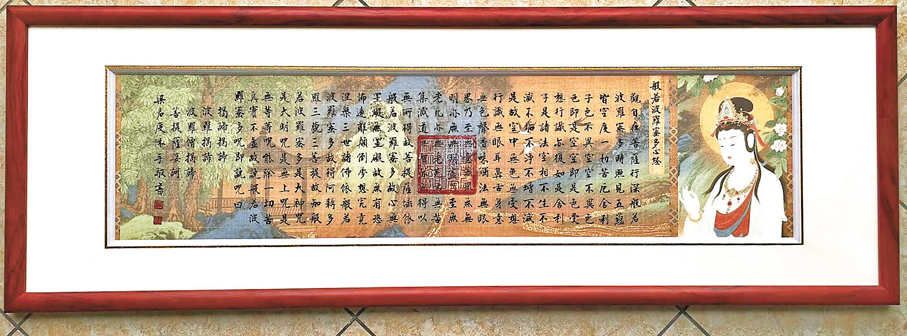 般若波羅蜜多心經
觀自在菩薩行深般若
波羅蜜多時照見五蘊
皆空度一切苦厄舍利
子色不異空空不異色
色即是空空即是色受
想行識亦復如是舍利
子是諸法空相不生不
滅不垢不淨不增不減
是故空中無色無受想
行識無眼耳鼻舌身意
無色聲香味觸法無眼
界乃至無意識界無無
明亦無無明盡乃至無
老死亦無老死盡無苦
集滅道無智亦無得以
無所得故菩提薩埵依
般若波羅蜜多故心無
罣礙無罣礙故無有恐
怖遠離顛倒夢想究竟
涅槃三世諸佛依般若
波羅蜜多故得阿耨多
羅三藐三菩提故知般
若波羅蜜多是大神咒
是大明咒是無上咒是
無等等咒能除一切苦
真實不虛故說般若波
羅蜜多咒即說咒曰
揭諦揭諦
波羅揭諦
波羅僧揭諦
菩提薩婆訶
沐手敬書